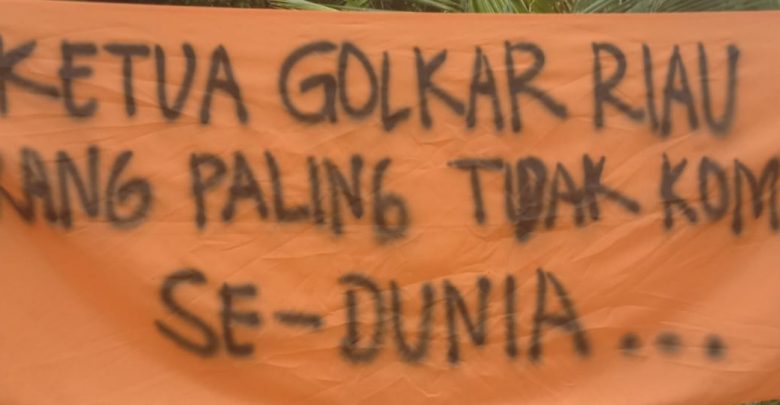 KETUA GOLKAR RIAU
PALING TIDAK
SE-DUNIA...